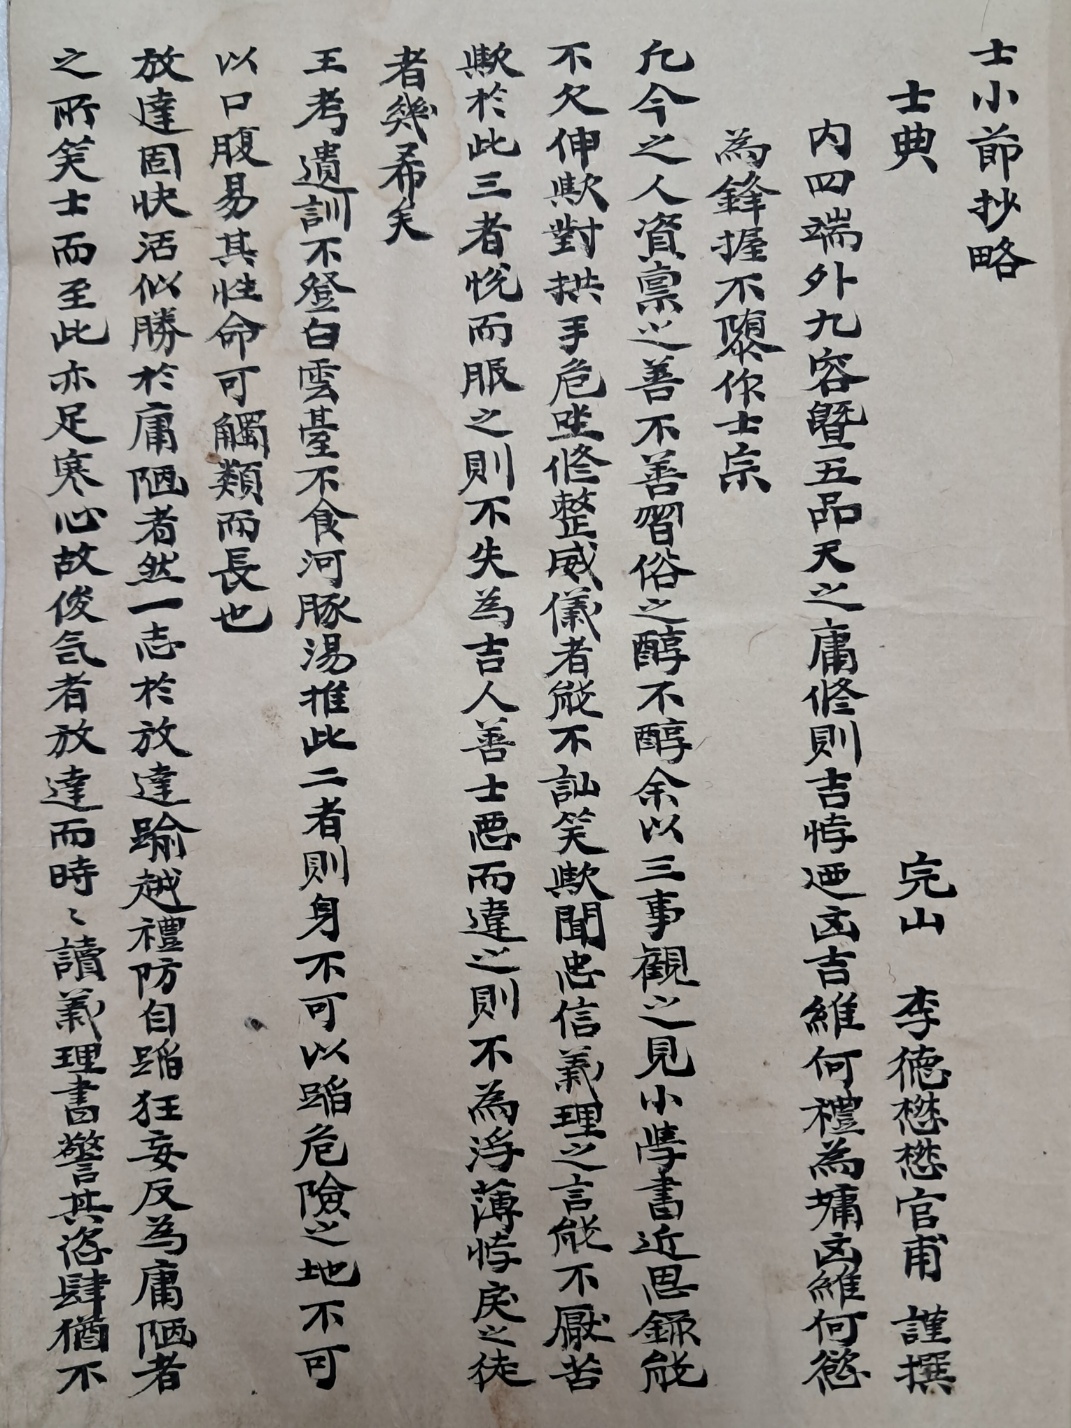 士小節抄略
士典 完山 李德懋懋官甫 謹撰
內四端外九容曁五品天之庸修則吉悖迺凶吉維何禮為墉凶維何慾
為鋒握不隳作士宗
凡今之人資禀之善不善習俗之醇不醇余以三事觀之見小學書近思錄能
不欠伸歟對拱手危坐修整威儀者能不訕笑歟聞忠信義理之言能不厭苦
歟於此三者悅而服之則不失為吉人善士惡而違之則不為浮薄悖戾之徒
者幾希矣
王考遺訓不登白雲臺不食河豚湯推此二者則身不可以蹈危險之地不可
以口腹易其性命可觸類而長也
放達固快活似勝於庸陋者然一志於放達踰越禮防自蹈狂妄反為庸陋者
之所笑士而至此亦足寒心故俊氣者放達而時〻讀義理書警其恣肆猶不